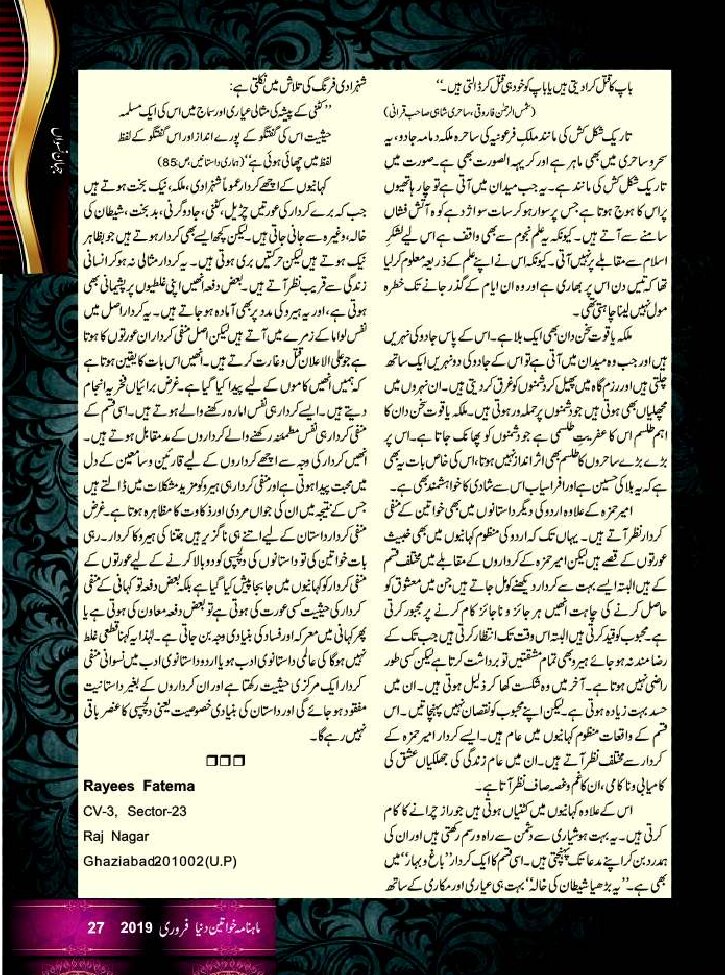 جہانِ نسواں
باپ کا قتل کرا دیتی ہیں یا باپ کو خود ہی قتل کر ڈالتی ہیں۔‘‘
(شمس الرحمن فاروقی، ساحری شاہی صاحب قرانی)
تاریک شکل کش کی مانند ملکِ فرعونیہ کی ساحرہ ملکہ دمامہ جادو، یہ
سحر و ساحری میں بھی ماہر ہے اور کریہہ الصورت بھی ہے۔ صورت میں
تاریک شکل کش کی مانند ہے۔ یہ جب میدان میں آتی ہے تو چار ہاتھیوں
پر اس کا ہوج ہوتا ہے جس پر سوار ہو کر سات سو اژدہے کوہ آتش فشاں
سامنے سے آتے ہیں۔ کیونکہ یہ علم نجوم سے بھی واقف ہے اس لیے لشکرِ
اسلام سے مقابلے پر نہیں آتی۔ کیونکہ اس نے اپنے علم کے ذریعہ معلوم کرلیا
تھا کہ تیس دن اس پر بھاری ہے اور وہ ان ایام کے گذر جانے تک خطرہ
مول نہیں لینا چاہتی تھی۔
ملکہ یاقوت سخن دان بھی ایک بلا ہے۔ اس کے پاس جادو کی نہریں
ہیں اور جب وہ میدان میں آتی ہے تو اس کے جادو کی دو نہریں ایک ساتھ
چلتی ہیں اور رزم گاہ میں پھیل کر دشمنوں کو غرق کر دیتی ہیں۔ ان نہروں میں
مچھلیاں بھی ہوتی ہیں جو دشمنوں پر حملہ ور ہوتی ہیں۔ ملکہ یاقوت سخن دان کا
اہم طلسم اس کا عفریت طلسمی ہے جو دشمنوں کو پھانک جاتا ہے۔ اس پر
بڑے بڑے ساحروں کا طلسم بھی اثر انداز نہیں ہوتا، اس کی خاص بات یہ بھی
ہے کہ یہ بلا کی حسین ہے اور افراسیاب اس سے شادی کا خواہشمند بھی ہے۔
امیر حمزہ کے علاوہ اردو کی دیگر داستانوں میں بھی خواتین کے منفی
کردار نظر آتے ہیں۔ یہاں تک کہ اردو کی منظوم کہانیوں میں بھی خبیث
عورتوں کے قصے ہیں لیکن امیر حمزہ کے کرداروں کے مقابلے میں مختلف قسم
کے ہیں البتہ ایسے بہت سے کردار دیکھنے کو مل جاتے ہیں جن میں معشوق کو
حاصل کرنے کی چاہت انھیں ہر جائز و ناجائز کام کرنے پر مجبور کرتی
ہے۔ محبوب کو قید کرتی ہیں البتہ اس وقت تک انتظار کرتی ہیں جب تک کے
رضامند نہ ہو جائے ہیرو بھی تمام مشقتیں تو برداشت کرتا ہے لیکن کسی طور
راضی نہیں ہوتا ہے۔ آخر میں وہ شکست کھا کر ذلیل ہوتی ہیں۔ ان میں
حسد بہت زیادہ ہوتی ہے۔ لیکن اپنے محبوب کو نقصان نہیں پہنچاتیں۔ اس
قسم کے واقعات منظوم کہانیوں میں عام ہیں۔ ایسے کردار امیر حمزہ کے
کردار سے مختلف نظر آتے ہیں۔ ان میں عام زندگی کی جھلکیاں عشق کی
کامیابی و ناکامی، ان کا غم و غصہ صاف نظر آتا ہے۔
اس کے علاوہ کہانیوں میں کٹنیاں ہوتی ہیں جو راز چرانے کا کام
کرتی ہیں۔ یہ بہت ہوشیاری سے دشمن سے راہ و رسم رکھتی ہیں اور ان کی
ہمدرد بن کر اپنے مدعا تک پہنچتی ہیں۔ اسی قسم کا ایک کردار ’’باغ و بہار‘‘ میں
بھی ہے۔ ’’یہ بڑھیا شیطان کی خالہ‘‘ بہت ہی عیاری اور مکاری کے ساتھ
شہزادی فرنگ کی تلاش میں نکلتی ہے:
’’کٹنی کے پیشہ کی مثالی عیاری اور سماج میں اس کی ایک مسلمہ
حیثیت اس کی گفتگو کے پورے انداز اور اس گفتگو کے لفظ
لفظ میں چھائی ہوئی ہے‘‘ (ہماری داستانیں، ص 85)
کہانیوں کے اچھے کردار عموماً شہزادی، ملکہ، نیک بخت ہوتے ہیں
جب کہ برے کردار کی عورتیں چڑیل، کٹنی، جادوگرنی، بدبخت، شیطان کی
خالہ، وغیرہ سے جانی جاتی ہیں۔ لیکن کچھ ایسے بھی کردار ہوتے ہیں جو بظاہر
نیک ہوتے ہیں لیکن حرکتیں بری ہوتی ہیں۔ یہ کردار مثالی نہ ہو کر انسانی
زندگی سے قریب نظر آتے ہیں۔ بعض دفعہ انھیں اپنی غلطیوں پر پشیمانی بھی
ہوتی ہے، اور یہ ہیرو کی مدد پر بھی آمادہ ہو جاتے ہیں۔ یہ کردار اصل میں
نفس لوامہ کے زمرے میں آتے ہیں لیکن اصل منفی کردار ان عورتوں کا ہوتا
ہے جو علی الاعلان قتل و غارت کرتے ہیں۔ انھیں اس بات کا یقین ہوتا ہے
کہ ہمیں انھیں کاموں کے لیے پیدا کیا گیا ہے۔ غرض برائیاں فخریہ انجام
دیتے ہیں۔ ایسے کردار ہی نفس امارہ رکھنے والے ہوتے ہیں۔ اسی قسم کے
منفی کردار ہی نفس مطمئنہ رکھنے والے کرداروں کے مدمقابل ہوتے ہیں۔
انھیں کردار کی وجہ سے اچھے کرداروں کے لیے قارئین و سامعین کے دل
میں محبت پیدا ہوتی ہے اور منفی کردار ہی ہیرو کو مزید مشکلات میں ڈالتے ہیں
جس کے نتیجہ میں ان کی جواں مردی اور ذکاوت کا مظاہرہ ہوتا ہے۔ غرض
منفی کردار داستان کے لیے اتنے ہی ناگزیر ہیں جتنا کی ہیرو کا کردار۔ رہی
بات خواتین کی تو داستانوں کی دلچسپی کو دوبالا کرنے کے لیے عورتوں کے
منفی کردار کو کہانیوں میں جا بجا پیش کیا گیا ہے بلکہ بعض دفعہ تو کہانی کے منفی
کردار کی حیثیت کسی عورت کی ہوتی ہے تو بعض دفعہ معاون کی ہوتی ہے یا
پھر کہانی میں معرکہ اور فساد کی بنیادی وجہ بن جاتی ہے۔ لہٰذا یہ کہنا قطعی غلط
نہیں ہوگا کی عالمی داستانوی ادب ہو یا اردو داستانوی ادب میں نسوانی منفی
کردار ایک مرکزی حیثیت رکھتا ہے اور ان کرداروں کے بغیر داستانیت
مفقود ہو جائے گی اور داستان کی بنیادی خصوصیت یعنی دلچسپی کا عنصر باقی
نہیں رہے گا۔
Rayees Fatema
CV-3, Sector-23
Raj Nagar
Ghaziabad201002(U.P)
ماہنامہ خواتین دنیا فروری 2019 27